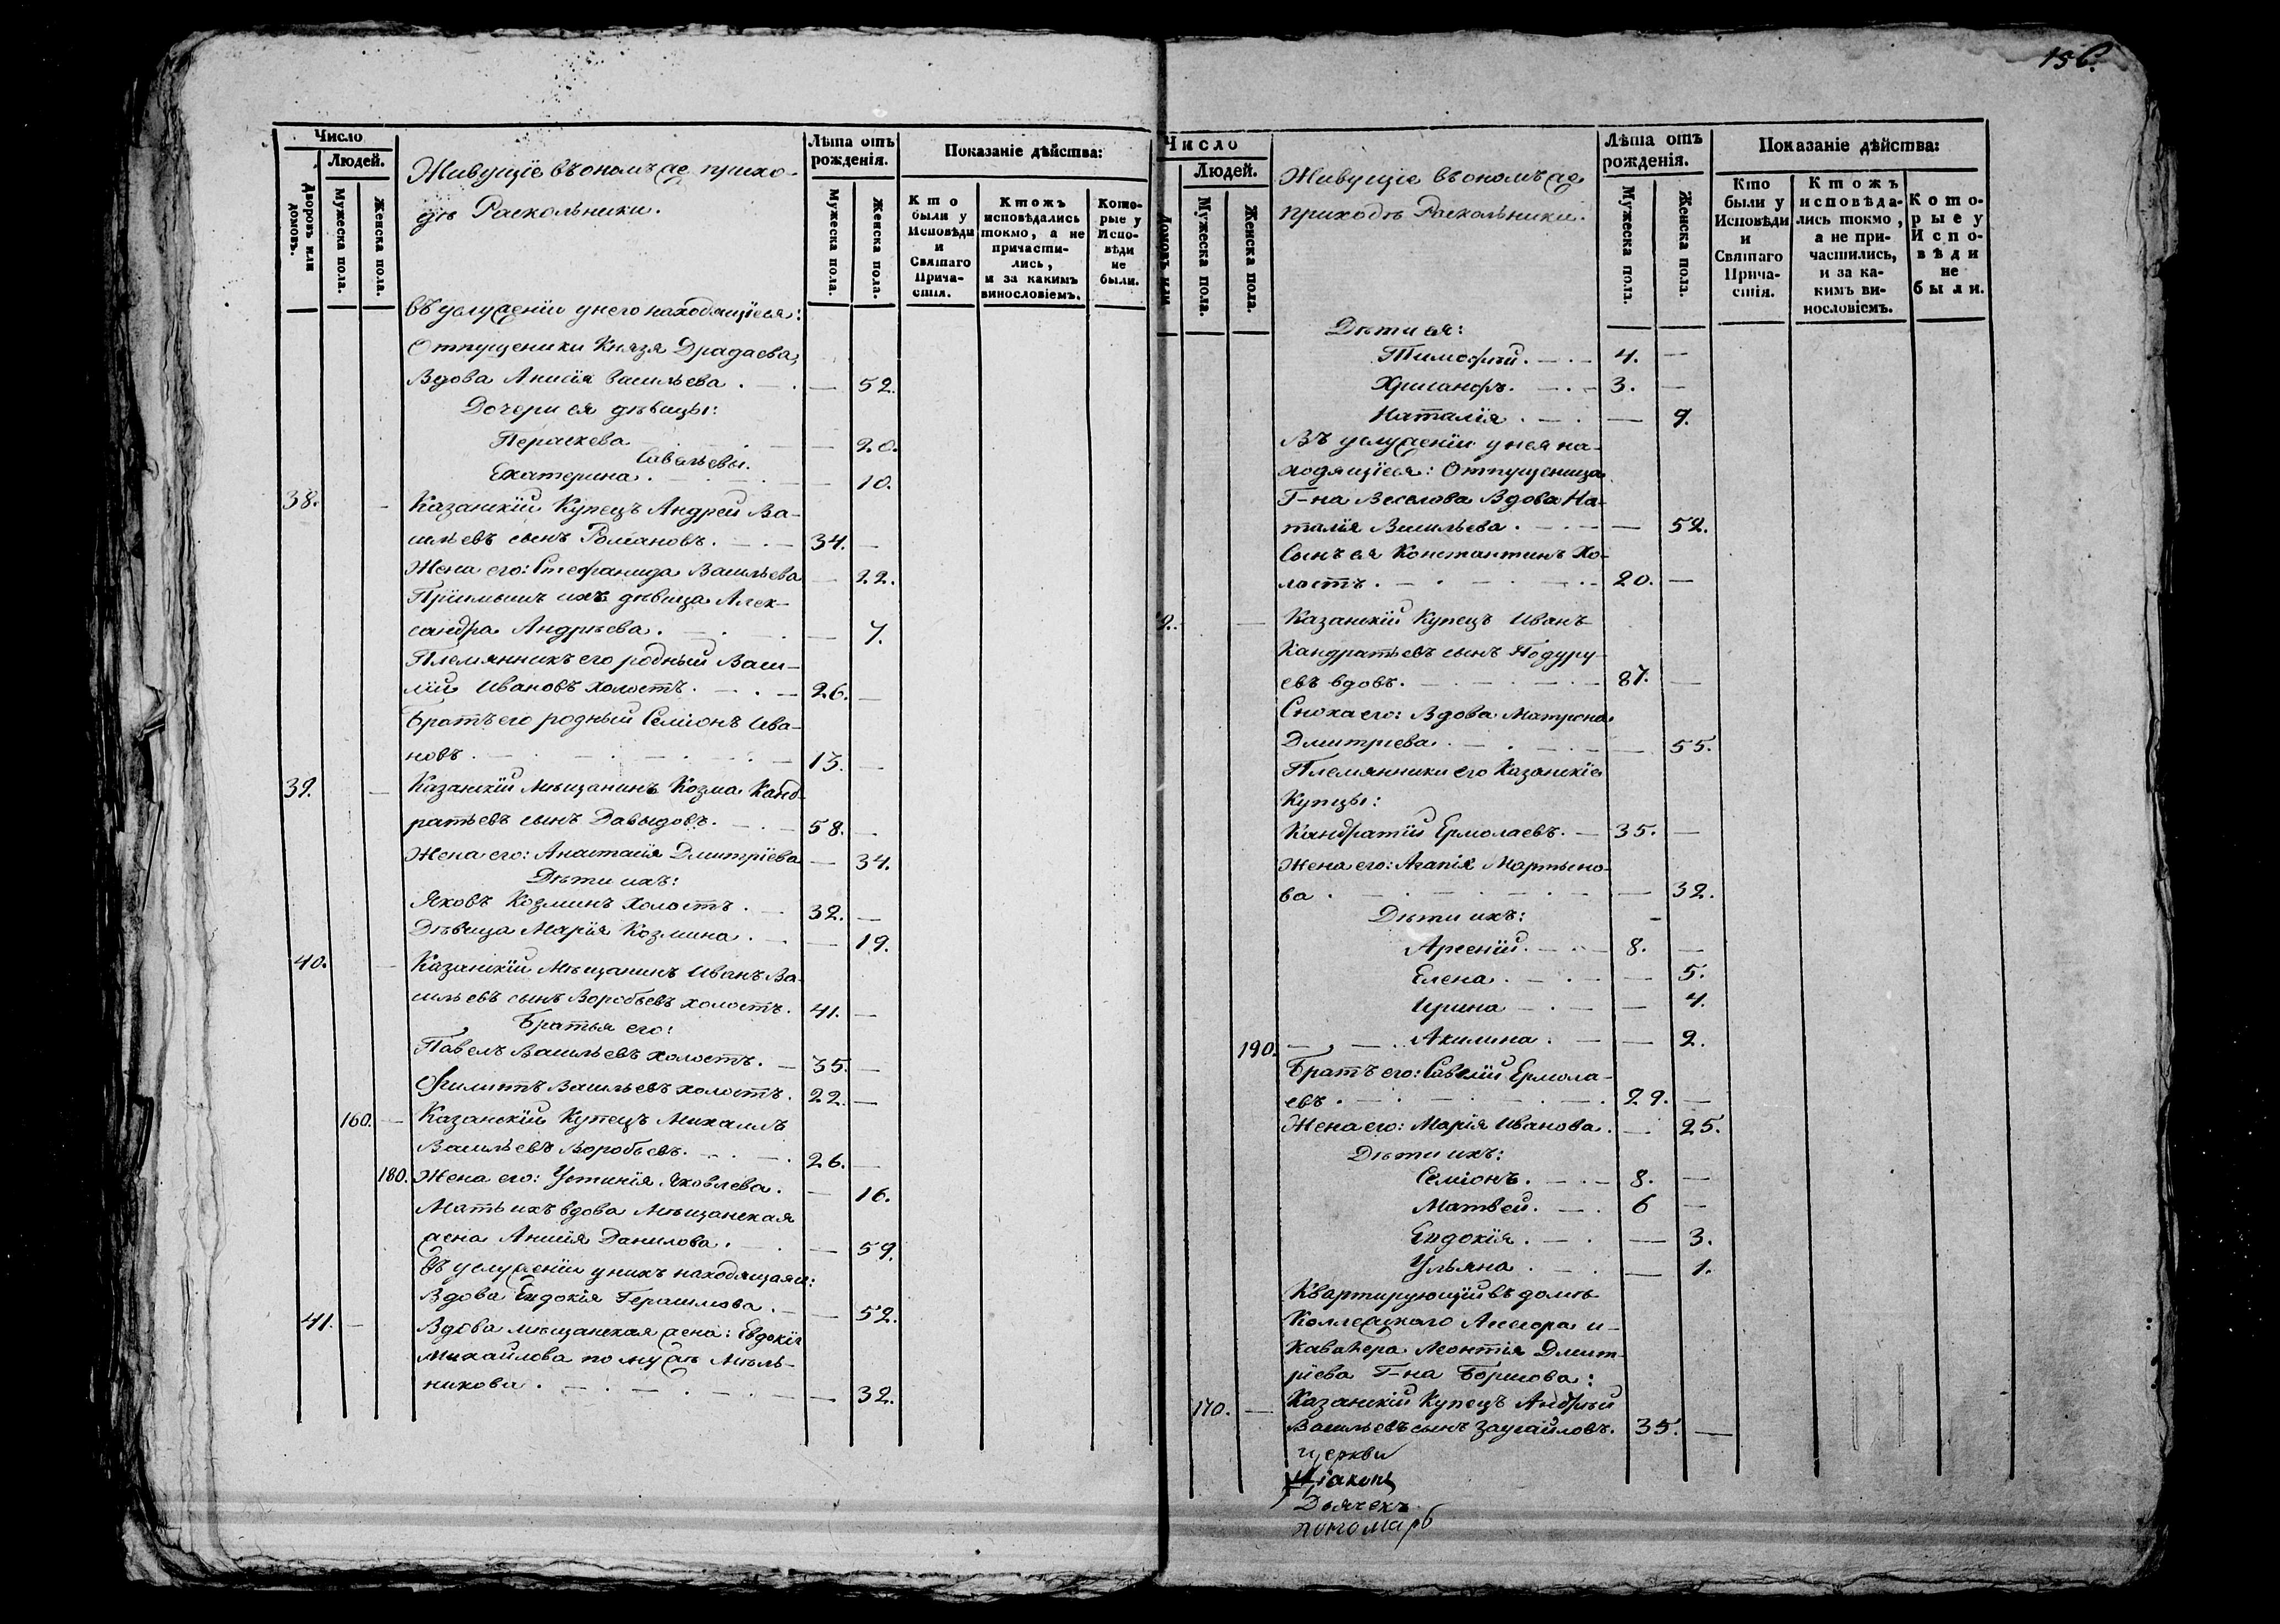 156.
Число
Людей.
Дворовъ или домовъ.
Мужеска пола.
Женска пола.
Живущіе въ ономъ же прихо-
дѣ Раскольники.
Лѣта отъ рожденія.
Мужеска пола.
Женска пола.
Показаніе дѣйства:
Кто были у Исповѣди и Святаго Прича- стія.
Ктожъ исповѣдались токмо, а не причасти- лись, и за какимъ винословіемъ.
Кото- рые у Испо- вѣди не были.
Въ услуженіи у него находящіеся:
Отпущеники Князя Драдаева,
Вдова Анисія Васильева . — . — 52.
Дочери ея дѣвицы:
Пераскева — 20.
Савельевы.
Екатерина . — 10.
38. Казанскій Купецъ Андрей Ва-
сильевъ сынъ Романовъ. — 34. —
Жена его: Стефанида Васильева — 22.
Пріимышъ ихъ дѣвица Алек-
сандра Андрѣева . — 7.
Племянникъ его родный Васи-
лій Ивановъ холостъ. — 26. —
Братъ его родный Семіонъ Ива-
новъ . — 13. —
39. Казанскій мѣщанинъ Козма Канд-
ратьевъ сынъ Давыдовъ. — 58. —
Жена его: Анастасія Дмитріева — 34.
Дѣти ихъ:
Яковъ Козминъ холостъ . — 32. —
Дѣвица Марія Козмина . — 19.
40. Казанскій мѣщанинъ Иванъ Ва-
сильевъ сынъ Воробьевъ холостъ. 41. —
Братья его:
Павелъ Васильевъ холостъ. — 35. —
Филиппъ Васильевъ холостъ. 22. —
160. — Казанскій Купецъ Михаилъ
Васильевъ Воробьевъ. — 26. —
180. Жена его: Устинія Яковлева. — 16.
Мать ихъ вдова мѣщанская
жена Анисія Данилова. — 59.
Въ услуженіи у нихъ находящаяся:
Вдова Евдокія Герасимова. — 52.
41. — Вдова мѣщанская жена: Евдокія
Михайлова по мужѣ Мѣль-
никова . — 32.
Число
Людей.
Домовъ или
Мужеска пола.
Женска пола.
Живущіе въ ономъ же
приходѣ Раскольники.
Лѣта отъ рожденія.
Мужеска пола.
Женска пола.
Показаніе дѣйства:
Кто были у Исповѣди и Святаго Прича- стія.
Ктожъ исповѣда- лись токмо, а не при- частились, и за ка- кимъ ви- нословіемъ.
Кото- рые у Испо- вѣди не были.
Дѣти ея:
Тимофѣй. — 4. —
Хрисанфъ. — 3. —
Наталія . — 9.
Въ услуженіи у нея на-
ходящіеся: Отпущеница
Г-на Веселова Вдова На-
талія Васильева . — 52.
Сынъ ея Константинъ хо-
лостъ . — 20. —
2. — Казанскій Купецъ Иванъ
Кандратьевъ сынъ Подуру-
евъ вдовъ. — 87. —
Сноха его: Вдова Матрена
Дмитрева . — 55.
Племянники его Казанскіе
Купцы:
Кандратій Ермолаевъ. — 35. —
Жена его: Агапія Мартыно-
ва . — 32.
Дѣти ихъ:
Арсеній. — 8. —
Елена . — 5.
Ирина — 4.
190. — Акилина . — 2.
Братъ его: Савелій Ермола-
евъ . — 29. —
Жена его: Марія Иванова . — 25.
Дѣти ихъ:
Семіонъ. — 8. —
Матвей. — 6 —
Евдокія . — 3.
Ульяна . — 1.
Квартирующій въ домѣ
Коллежскаго Асесора и
Кавалера Леонтія Дмит-
ріева Г-на Борисова:
170. — Казанскій Купецъ Андрѣй
Васильевъ сынъ Заусайловъ. 35. —
Церкви
Діаконъ
Дьячекъ
пономарь